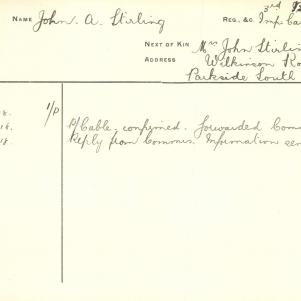 NAME John. A. Stirling REG. &C. 3rd
Imp Ca
NEXT OF KIN Mrs John Stirlin
ADDRESS Wilkinson Ro
Parkside South
8. 1/P
18. P/Cable. confirmed. Forwarded Com
18. Reply from Commrs. Information sen